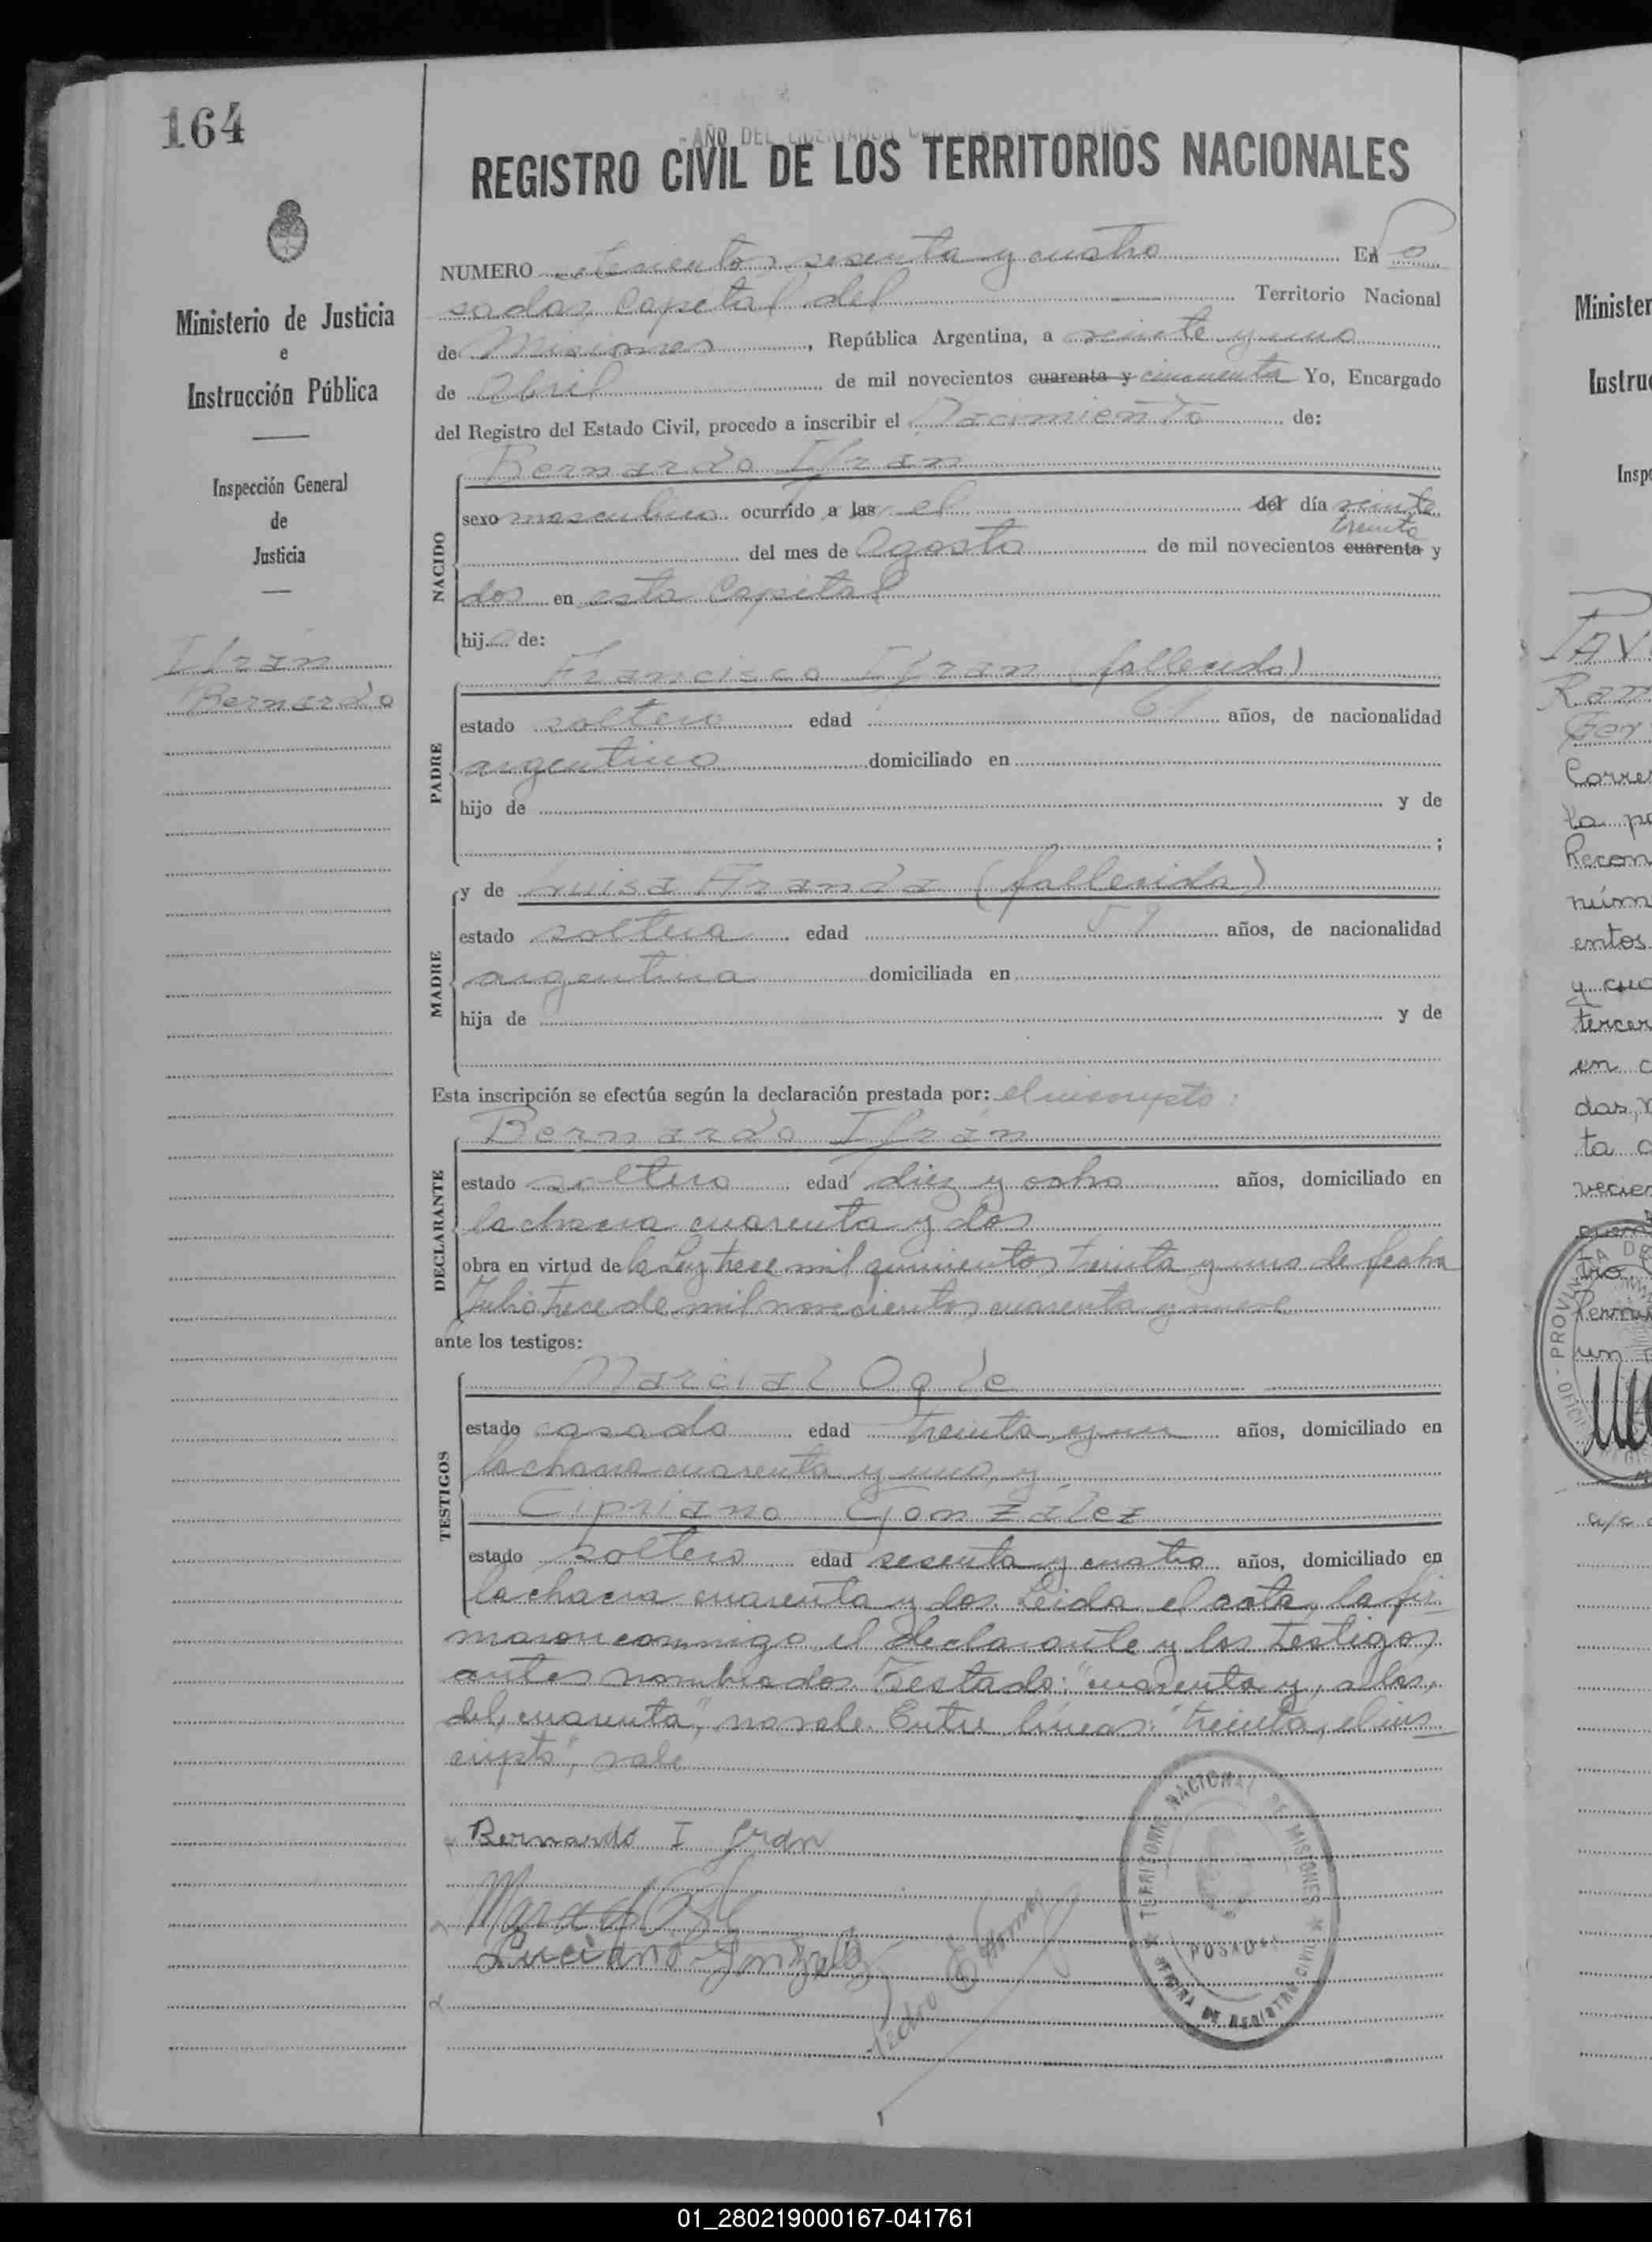 164
AÑO DEL LIBERTADOR GENERAL
REGISTRO CIVIL DE LOS TERRITORIOS NACIONALES
Ministerio de Justicia
e
Instrucción Pública
Inspección General
de
Justicia
Ifrán
Bernardo
NUMERO setecientos sesenta y cuatro En Po
sadas, Capital del Territorio Nacional
de Misiones, República Argentina, a veinte y uno
de Abril de mil novecientos cuarenta y cincuenta Yo, Encargado
del Registro del Estado Civil, procedo a inscribir el Nacimiento de:
NACIDO
Bernardo Ifran
sexo masculino ocurrido a las el del día veinte
treinta
del mes de Agosto de mil novecientos cuarenta y
dos en esta Capital
hijo de:
PADRE
Francisco Ifran (fallecido)
estado soltero edad años, de nacionalidad
argentino domiciliado en
hijo de y de
;
MADRE
y de Luisa Aranda (fallecida)
estado soltera edad 59 años, de nacionalidad
argentina domiciliada en
hija de y de
Esta inscripción se efectúa según la declaración prestada por: el inscripto:
DECLARANTE
Bernardo Ifrán
estado soltero edad diez y ocho años, domiciliado en
la chacra cuarenta y dos
obra en virtud de la Ley trece mil quinientos treinta y uno de fecha
Julio trece de mil novecientos cuarenta y nueve
ante los testigos:
TESTIGOS
Marcial Ogde
estado casado edad treinta y un años, domiciliado en
la chacra cuarenta y uno, y
Cipriano González
estado soltero edad sesenta y cuatro años, domiciliado en
la chacra cuarenta y dos. Leida el acta, la fir
maron conmigo el declarante y los testigos
antes nombrados. Testado: "cuarenta y, a las,
del, cuarenta", no vale. Entre líneas: "treinta, el ins
cripto", vale
Bernardo Ifrán
TERRITORIO NACIONAL DE MISIONES
POSADAS
OFICINA DE REGISTRO CIVIL
Minister
Instru
Insp
Corre
la po
Recon
núm
entos
y cua
tercer
en c
das, 
ta
vecie
PROVINCIA DE
un
a/c
01_280219000167-041761